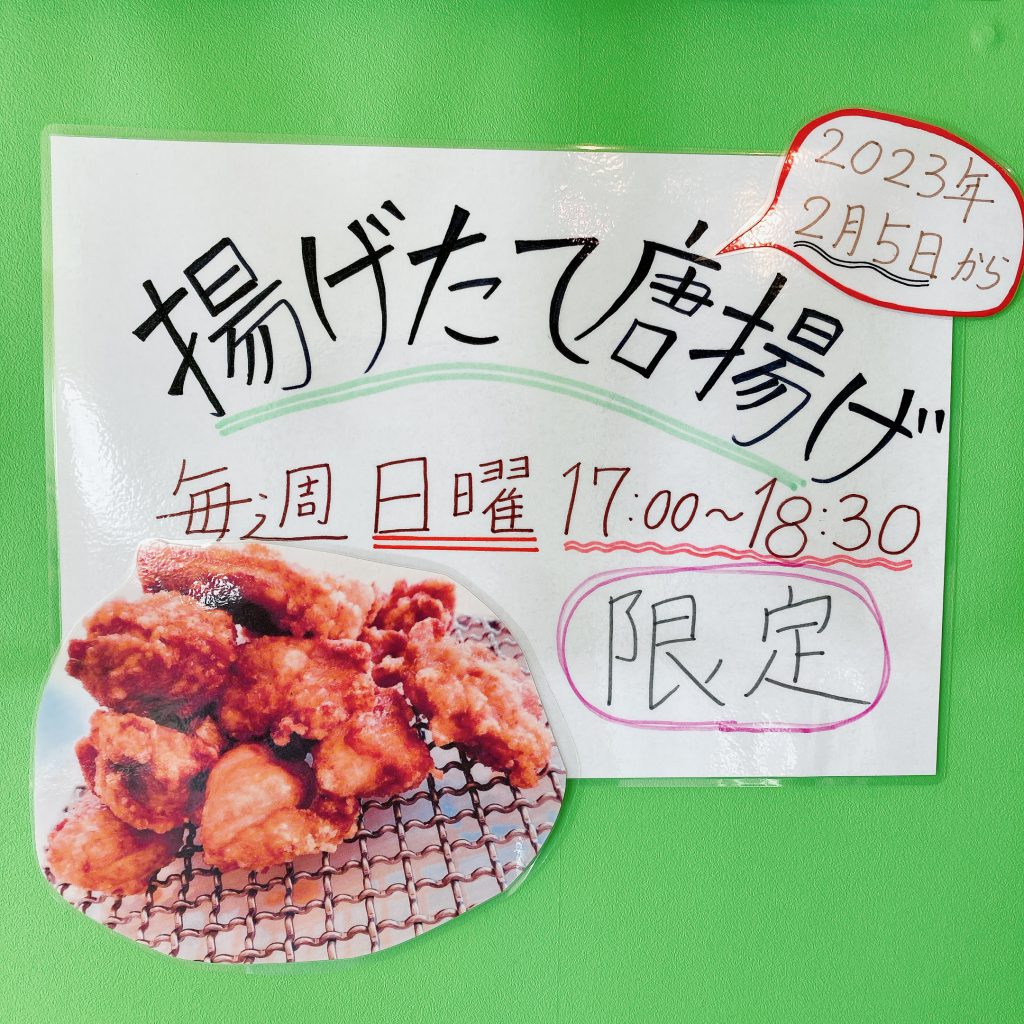 2023年
2月5日から
揚げたて唐揚げ
毎週日曜17:00～18:30
限定